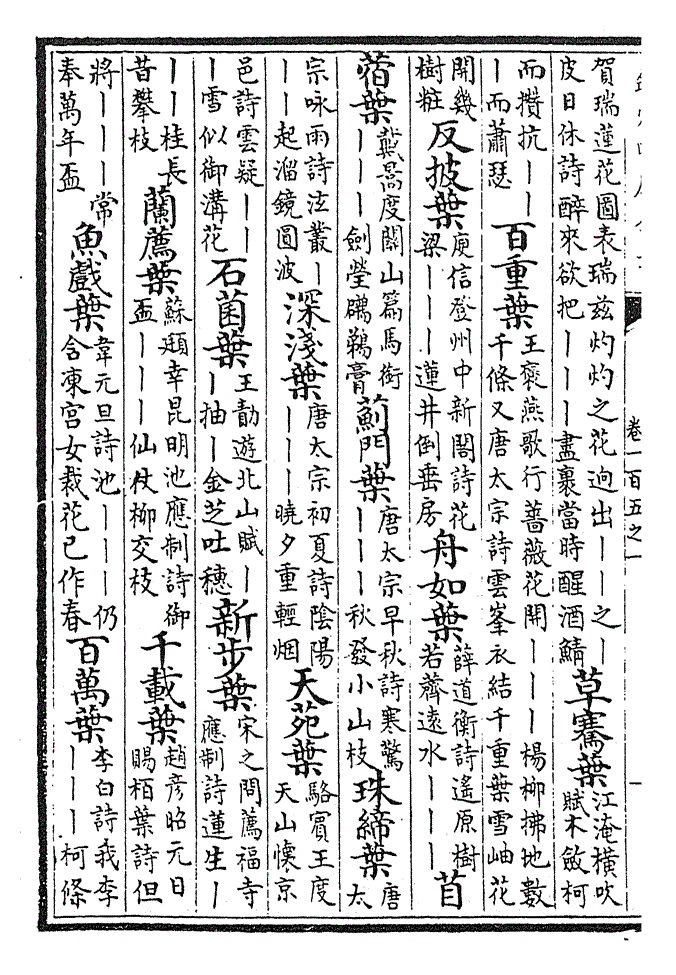 卷一百五之一
賀瑞蓮花圖表瑞茲灼灼之花迥出丨丨之丨皮日休詩醉來欲把丨丨丨盡裹當時醒酒鯖 草騫葉 江淹橫吹賦木斂柯
而攢抗丨丨丨而蕭瑟 百重葉 王褒燕歌行薔薇花開丨丨丨楊柳拂地數千條又唐太宗詩雲峯衣結千重葉雪岫花
開幾樹粧 反披葉 庾信登州中新閣詩花梁丨丨丨蓮井倒垂房 舟如葉 薛道衡詩遙原樹若薺遠水丨丨丨 苜
蓿葉 戴暠度關山篇馬銜丨丨丨劍瑩鸊鵜膏 薊門葉 唐太宗早秋詩寒驚丨丨丨秋發小山枝 珠締葉 唐太
宗咏雨詩泫叢丨丨丨起溜鏡圖波 深淺葉 唐太宗初夏詩陰陽丨丨丨曉夕重輕烟 天苑葉 駱賓王度天山懷京
邑詩雲疑丨丨丨雪似御溝花 石菌葉 王勣遊北山賦丨丨抽丨金芝吐穗 新步葉 宋之問薦福寺應制詩蓮生丨
丨丨桂長昔攀枝 蘭薦葉 蘇頲幸昆明池應制詩御盃丨丨丨仙仗柳交枝 千載葉 趙彥昭元日賜栢葉詩但
將丨丨丨常奉萬年盃 魚戲葉 韋元旦詩池丨丨丨仍含凍宮女裁花已作春 百萬葉 李白詩我李丨丨丨柯條